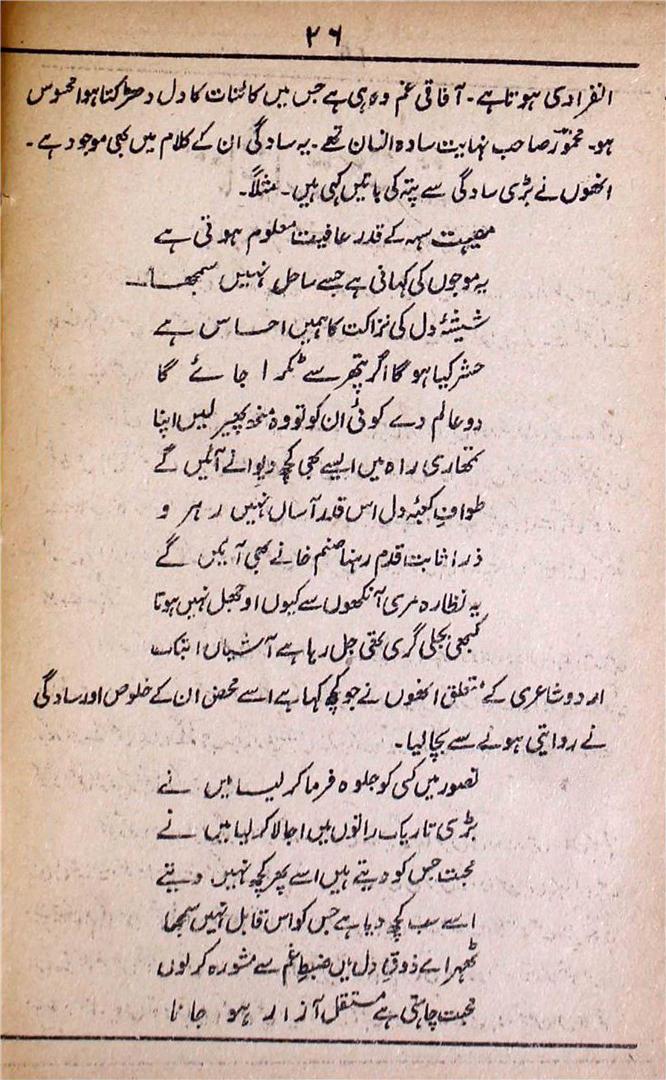 ۲۶
انفرادی ہوتا ہے۔ آفاقی غم وہ ہی ہے جس میں کائنات کا دل دھڑکتا ہوا محسوس
ہو۔ مخمورؔ صاحب نہایت سادہ انسان تھے۔ یہ سادگی ان کے کلام میں بھی موجود ہے۔
انھوں نے بڑی سادگی سے پتہ کی باتیں کہی ہیں۔ مثلاً۔
مصیبت سہہ کے قدر عافیت معلوم ہوتی ہے
یہ موجوں کی کہانی ہے جسے ساحل نہیں سمجھا
شیشۂ دل کی نزاکت کا ہمیں احساس ہے
حشر کیا ہوگا اگر پتھر سے ٹکرا جائے گا
دو عالم دے کوئی ان کو تو وہ منھ پھیر لیں اپنا
تمھاری راہ میں ایسے بھی کچھ دیوانے آئیں گے
طوافِ کعبۂ دل اس قدر آساں نہیں رہرو
ذرا ثابت قدم رہنا صنم خانے بھی آئیں گے
یہ نظارہ مری آنکھوں سے کیوں اوجھل نہیں ہوتا
کبھی بجلی گری تھی جل رہا ہے آشیاں ابتک
اردو شاعری کے متعلق انھوں نے جو کچھ کہا ہے اسے محض ان کے خلوص اور سادگی
نے روایتی ہونے سے بچا لیا۔
تصور میں کسی کو جلوہ فرما کر لیا میں نے
بڑی تاریک راتوں میں اجالا کر لیا میں نے
محبت جس کو دیتے ہیں اسے پھر کچھ نہیں دیتے
اسے سب کچھ دیا ہے جس کو اس قابل نہیں سمجھا
ٹھہر اے ذوقِ دل میں ضبطِ غم سے مشورہ کر لوں
محبت چاہتی ہے مستقل آزار ہو جانا